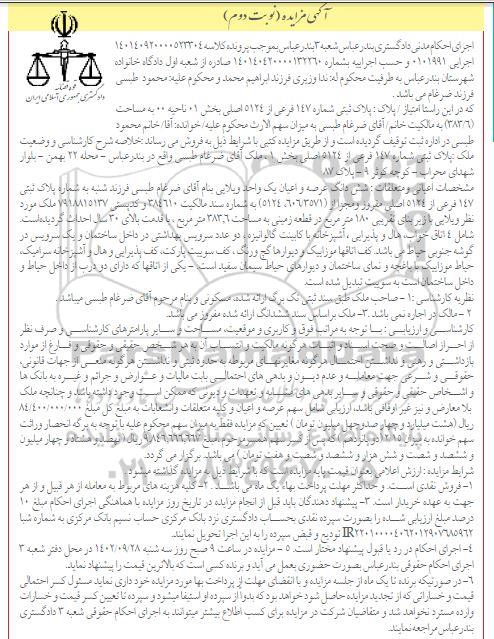 آگهی مزایده (نوبت دوم)
قوه قضائیه
دادگستری جمهوری اسلامی ایران
اجرای احکام مدنی دادگستری بندرعباس شعبه ۳ بندرعباس بموجب پرونده کلاسه ۱۴۰۱۴۰۹۲۰۰۰۰۵۲۳۳۰۴
اجرایی ۰۱۰۱۹۹۱ و حسب اجراییه بشماره ۱۴۰۱۴۰۴۲۰۰۰۰۱۳۲۲۶۰ صادره از شعبه اول دادگاه خانواده
شهرستان بندرعباس به طرفیت محکوم له: ندا وزیری فرزند ابراهیم محمد و محکوم علیه: محمود طبسی
فرزند ضرغام می باشد .
که در این راستا امتیاز / پلاک : پلاک ثبتی شماره ۱۴۷ فرعی از ۵۱۲۴ اصلی بخش ۰۱ ناحیه ۰۰ به مساحت
(۳۸۳/۶) به مالکیت خانم/ آقای ضرغام طبسی به میزان سهم الارث محکوم علیه/خوانده: آقا/ خانم محمود
طبسی در اداره ثبت توقیف گردیده است و از طریق مزایده کتبی با شرایط ذیل به فروش می رساند :خلاصه شرح کارشناسی و وضعیت
ملک :پلاک ثبتی شماره ۱۴۷ فرعی از ۵۱۲۴ اصلی بخش ۱ ، ملک آقای ضرغام طبسی واقع در بندرعباس - محله ۲۲ بهمن - بلوار
شهدای محراب - کوچه کوثر ۹ - پلاک ۸۷
مشخصات اعیانی و متعلقات : شش دانگ عرصه و اعیان یک واحد ویلایی بنام آقای ضرغام طبسی فرزند شنبه به شماره پلاک ثبتی
۱۴۷ فرعی از ۵۱۲۴ اصلی مفروز و مجزا از (۶۰۶/۳۵۷۱ ، ۵۱۲۴) به شماره سند مالکیت ۳۸۴۶۱۰ و کدپستی ۷۹۱۸۸۱۵۱۳۷ ملک مورد
نظر ویلایی با زیربنای تقریبی ۱۸۰ متر مربع در قطعه زمینی به مساحت ۳۸۳/۶ متر مربع ، با قدمت بالای ۳۰ سال احداث گردیده است.
شامل ۴ اتاق خواب، هال و پذیرایی ، آشپزخانه با کابینت گالوانیزه ، دو عدد سرویس بهداشتی در داخل ساختمان و یک سرویس در
گوشه جنوبی حیاط می باشد. کف اتاقها موزاییک و دیوارها گچ و رنگ ، کف سوییت پارکت، کف پذیرایی و هال و آشپزخانه سرامیک،
حیاط موزاییک با باغچه و نمای ساختمان و دیوارهای حیاط سیمان سفید است. – یکی از اتاقها که دارای دو درب از داخل حیاط و
داخل ساختمان است به سوییت تبدیل شده است.
نظریه کارشناسی :۱ - صاحب ملک طبق سند ثبتی تک برگ ارائه شده، مسکونی و بنام مرحوم آقای ضرغام طبسی میباشد .
۲ - ملک در اجاره نمی باشد .۳- ملک براساس سند ششدانگ ارائه شده مفروز می باشد.
کارشناسی و ارزیابی : با توجه به مراتب فوق و کاربری و موقعیت، مساحت و سایر پارامترهای کارشناسی و صرف نظر
از احراز اصالت و صحت اسناد و اثبات هرگونه مالکیت و انتساب آن به هر شخص حقیقی و حقوقی و فارغ از موارد
بازداشتی و رهنی و نداشتن احتمال هرگونه مغایرتهای مربوطه به حدود ثبتی و نداشتن هرگونه منعی از جهات قانونی،
حقوقی و شرعی جهت معامله و عدم دیون و بدهی های احتمالی بابت مالیات و عوارض و جرائم و غیره به بانک ها
و اشخاص حقیقی و حقوقی و سایر بدهی های مشابه و تعهدات و دیونی که ممکن است وجود داشته باشد و چنانچه ملک
بلا معارض و نیز غیر اوقافی باشد، ارزیابی شامل سهم عرصه و اعیان و کلیه متعلقات و انشعابات به مبلغ کل مبلغ ۸۴/۴۰۰/۰۰۰/۰۰۰
ریال (هشت میلیارد و چهار صد و چهل میلیون تومان ) تعیین که مزایده فقط به میزان سهم محکوم علیه با توجه به برگه انحصار وراثت
سهم خوانده به میزان ۲/۱۵ (دو پانزدهم ) که پس از کسر سهم همسر مرحوم مبلغ ۹/۸۴۶/۶۶۶/۶۶۳ ریال (نهصد و هشتاد و چهار میلیون
و ششصد و شصت و شش هزار و ششصد و شصت و هفت تومان ) می باشد برگزار می گردد.
شرایط مزایده : ارزش اعلامی بعنوان قیمت پایه مزایده است که با شرایط ذیل به مزایده گذاشته میشود .
۱- فروش نقدی است. و حداکثر مهلت پرداخت بها، یک ماه می باشد. ۲- کلیه هزینه های مربوط به معامله از هر قبیل و از هر
جهت به عهده خریدار است. ۳- پیشنهاد دهندگان باید قبل از انجام مزایده در تاریخ روز مزایده با هماهنگی اجرای احکام مبلغ ۱۰
درصد مبلغ ارزیابی شده را بصورت سپرده نقدی بحساب دادگستری نزد بانک مرکزی حساب نسیم بانک مرکزی به شماره شبا
IR۲۲۰۱۰۰۰۰۴۰۶۲۰۱۲۹۰۷۶۸۵۹۶۲ تودیع و قبض سپرده را به این اجرا تحویل نمایند.
۴- اجرای احکام در رد یا قبول پیشنهاد مختار است. ۵ - مزایده در ساعت ۹ صبح روز سه شنبه ۱۴۰۲/۰۹/۲۸ در محل دفتر شعبه ۳
اجرای احکام حقوقی بندرعباس بصورت حضوری بعمل می آید و برنده کسی است که بالاترین قیمت را پیشنهاد نماید.
۶- در صورتیکه برنده تا یک ماه از جلسه مزایده و با انقضای مهلت از پرداخت بها مورد مزایده خود داری نماید مسئول کسر احتمالی
قیمت و خساراتی که از تجدید مزایده حاصل شود خواهد بود که بدوا از سپرده او استیفا میشود و سپرده تا تعیین کسر قیمت و خسارات
وارده مسترد نخواهد شد و متقاضیان شرکت در مزایده برای کسب اطلاع بیشتر میتوانند به اجرای احکام حقوقی شعبه ۳ دادگستری
بندرعباس مراجعه نمایند.